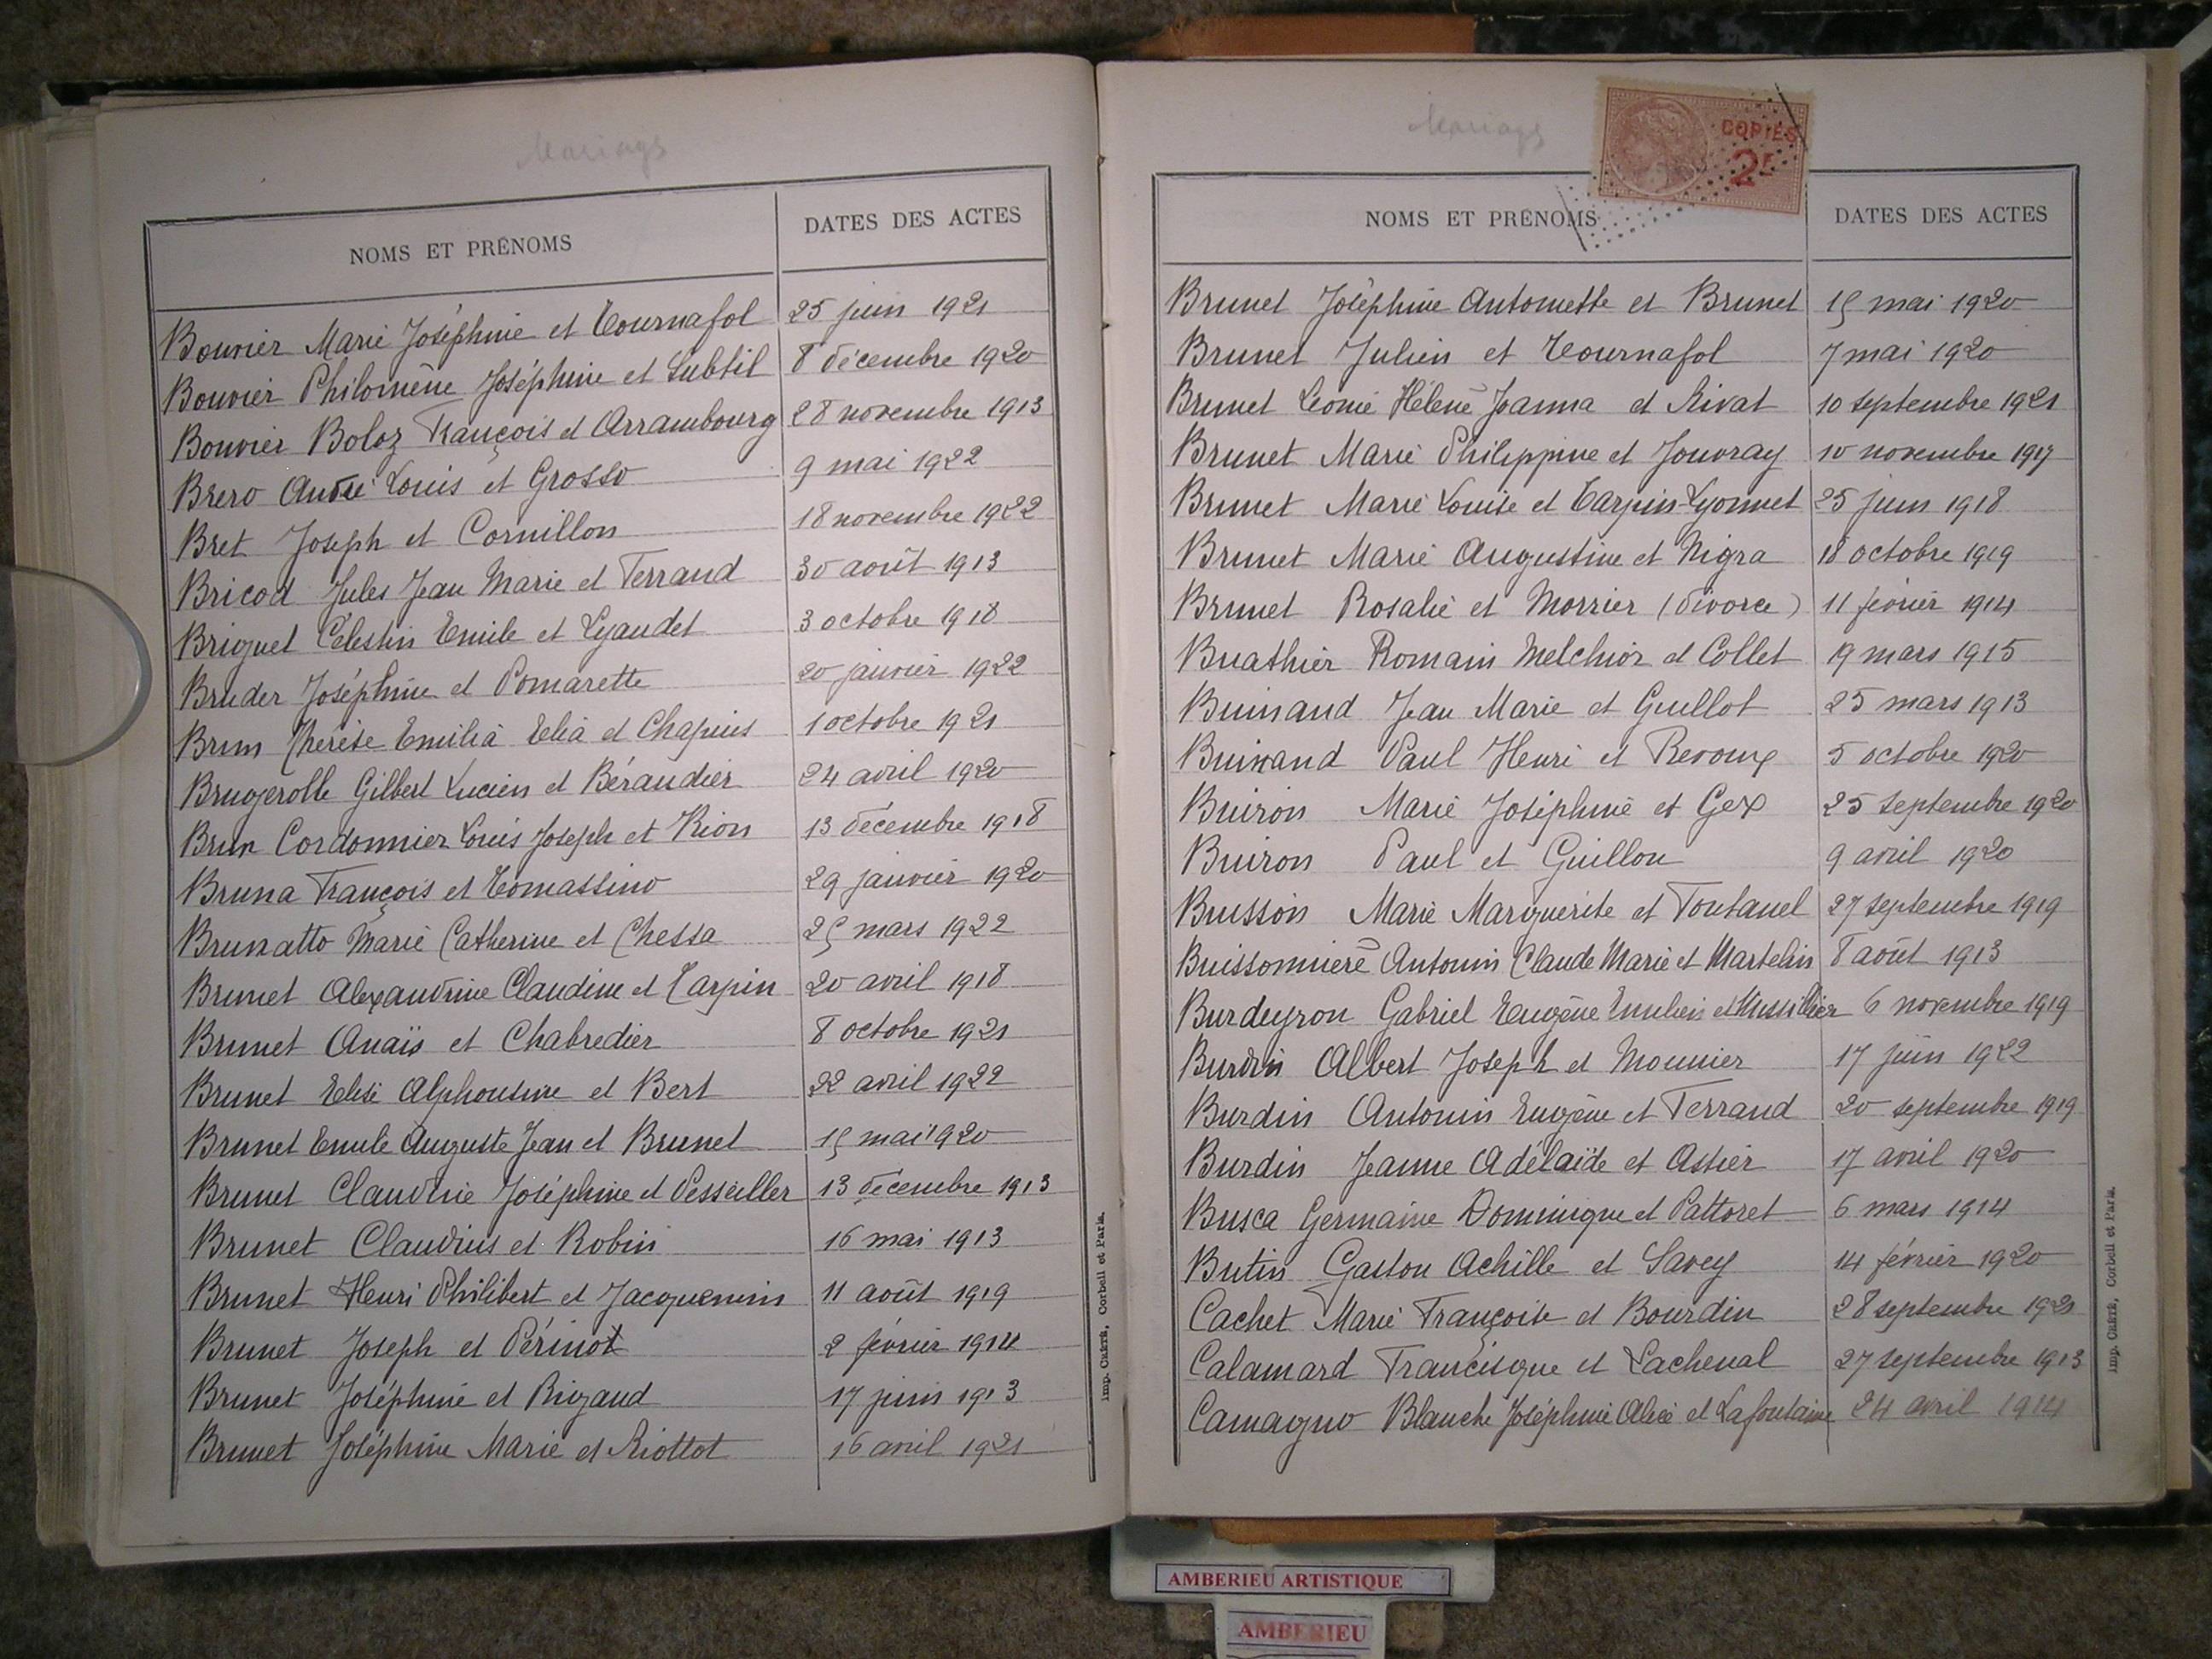 Mariages
NOMS ET PRÉNOMS DATES DES ACTES
Bouvier Marie Joséphine et Tournafol 25 juin 1921
Bouvier Philomène Joséphine et Subtil 8 décembre 1920
Bouvier Boloz François et Arrambourg 28 novembre 1913
Brero André Louis et Grosso 9 mai 1922
Bret Joseph et Cornillon 18 novembre 1922
Bricod Jules Jean Marie et Ferrand 30 août 1913
Briguet Célestin Emile et Lyaudet 3 octobre 1918
Bruder Joséphine et Pomarette 20 janvier 1922
Brun Thérèse Emilia Elia et Chapuis 1 octobre 1921
Brugerolle Gilbert Lucien et Béraudier 24 avril 1920
Brun Cordonnier Louis Joseph et Rion 13 décembre 1918
Bruna François et Tomassino 29 janvier 1920
Brunatto Marie Catherine et Chessa 25 mars 1922
Brunet Alexandrine Claudine et Tarpin 20 avril 1918
Brunet Anaïs et Chabredier 8 octobre 1921
Brunet Elise Alphonsine et Bert 22 avril 1922
Brunet Emile Auguste Jean et Brunet 15 mai 1920
Brunet Claudine Joséphine et Pesseiller 13 décembre 1913
Brunet Claudius et Robin 16 mai 1913
Brunet Henri Philibert et Jacquemin 11 août 1919
Brunet Joseph et Périnot 2 février 1914
Brunet Joséphine et Rigaud 17 juin 1913
Brunet Joséphine Marie et Riottot 16 avril 1921
Imp. CRÉTÉ, Corbeil et Paris.
Mariages
COPIES
2F
NOMS ET PRÉNOMS DATES DES ACTES
Brunet Joséphine Antoinette et Brunet 15 mai 1920
Brunet Julien et Tournafol 7 mai 1920
Brunet Léonie Hélène Joanna et Rivat 10 septembre 1921
Brunet Marie Philippine et Jouvray 10 novembre 1917
Brunet Marie Louise et Tarpin-Lyonnet 25 juin 1918
Brunet Marie Augustine et Nigra 18 octobre 1919
Brunet Rosalie et Morrier (divorce) 11 février 1914
Buathier Romain Melchior et Collet 19 mars 1915
Buinand Jean Marie et Guillot 25 mars 1913
Buinand Paul Henri et Revoux 5 octobre 1920
Buiron Marie Joséphine et Gex 25 septembre 1920
Buiron Paul et Guillon 9 avril 1920
Buisson Marie Marguerite et Fontanel 27 septembre 1919
Buissonnière Antonin Claude Marie et Martelin 8 août 1913
Burdeyron Gabriel Eugène Emilien et 6 novembre 1919
Burdin Albert Joseph et Mounier 17 juin 1922
Burdin Antonin Eugène et Ferrand 20 septembre 1919
Burdin Jeanne Adélaïde et Astier 17 avril 1920
Busca Germaine Dominique et Pattoret 6 mars 1914
Butin Gaston Achille et Savey 14 février 1920
Cachet Marie Françoise et Bourdin 28 septembre 1921
Calamard Francisque et Lachenal 27 septembre 1913
Camagno Blanche Joséphine Alice et Lafontaine 24 avril 1914
Imp. CRÉTÉ, Corbeil et Paris.
AMBERIEU ARTISTIQUE
AMBERIEU